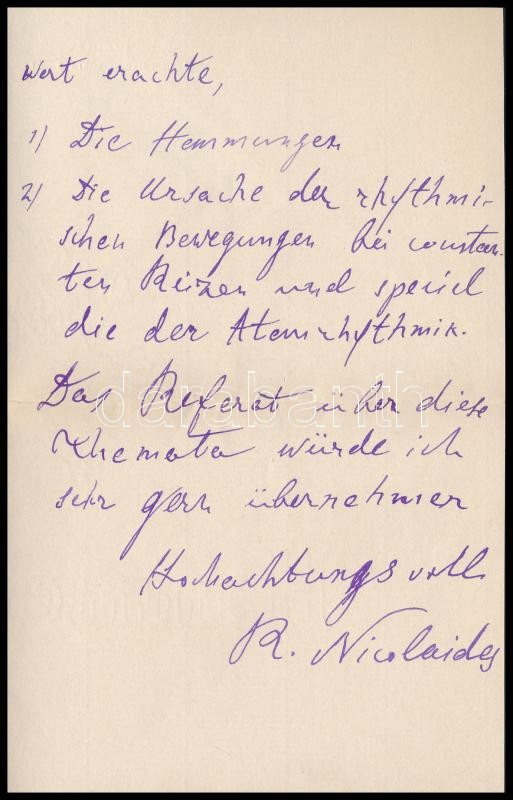 wert erachte,
1) Die Hemmungen
2) Die Ursache der rhythmi-
schen Bewegungen bei constan-
ten Reizen und speciel
die der Atemrhythmik.
Das Referat über diese
Themata würde ich
sehr gern übernehmen
Hochachtungsvoll
R. Nicolaides
darabanth